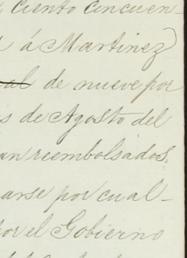 ciento cincuen
á Martinez
al de nueve por
s de Agosto del
an reembolsados,
arse por cual-
por el Gobierno